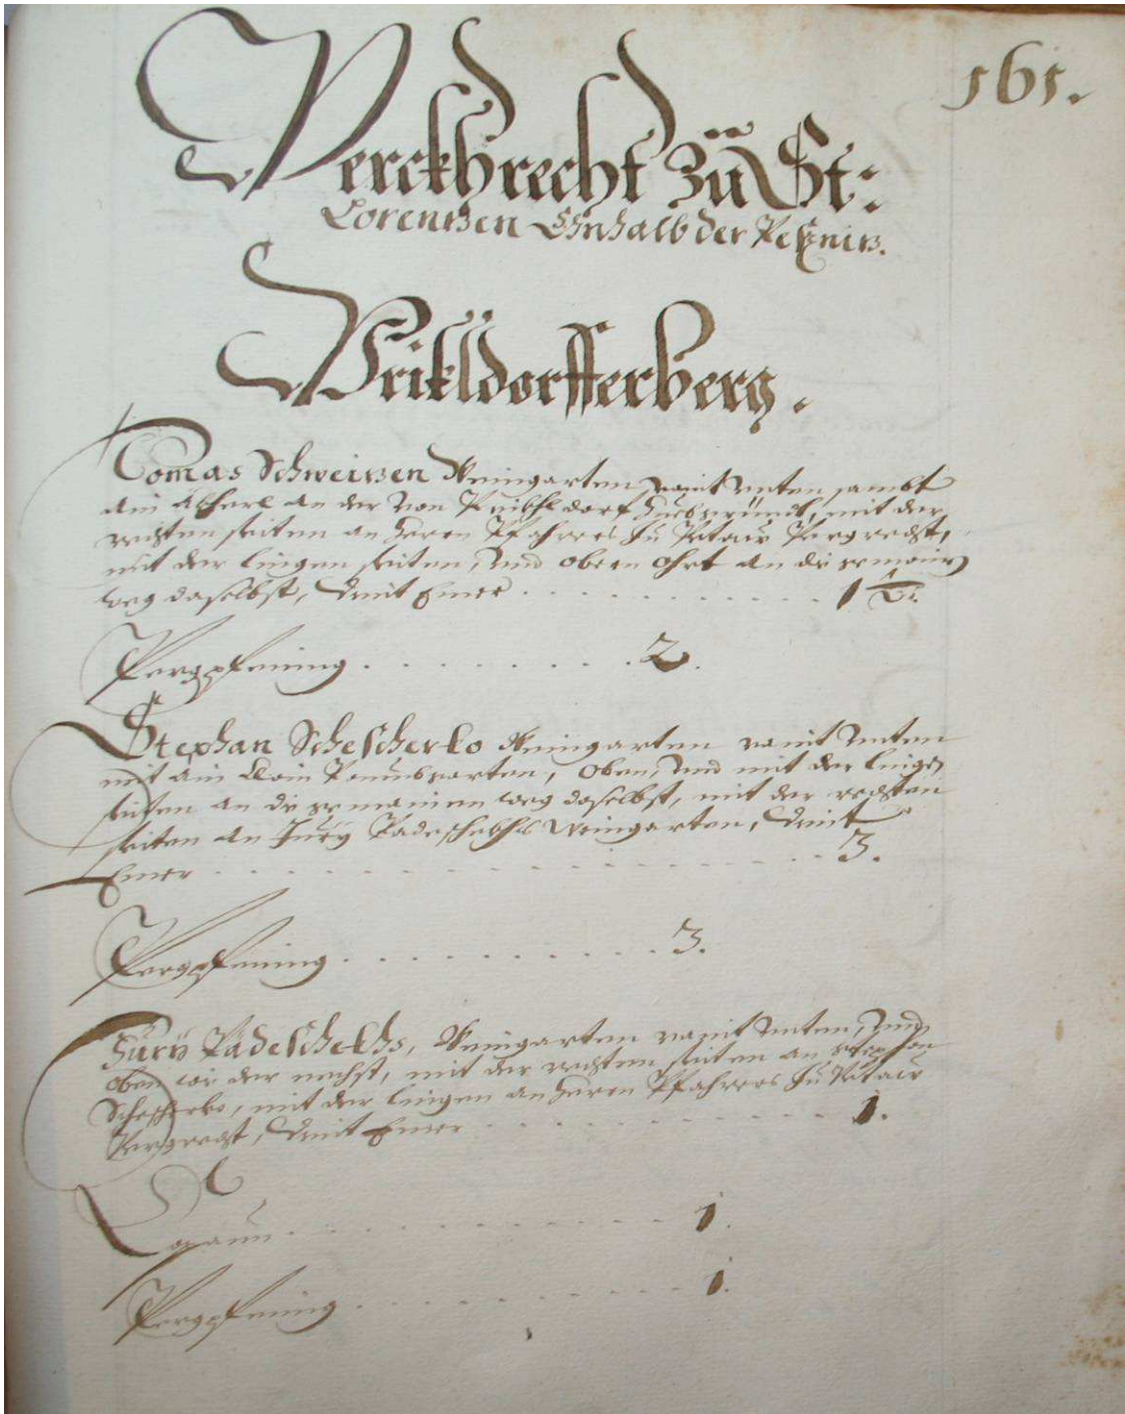 161.
Perckhrecht Zu St:
Lorentzen Ehnhalb der Peßnitz.
Prikldorfferberg.
Tomas Schweitzen Weingarten raint unten sambt
ain Äckerl an der von Prikhldorf, mit der
rechten seiten an Herrn Pfahrers Zu Petau Pergrecht,
mit der lingen seiten, und obern ohrt an die gemain
weg daselbst, dient Emer . . . . . . . . . . . 1 1/2.
Pergpfening . . . . . . . . . 2.
Stephan Schescherko Weingarten raint unten
mit ain klain Paumbgarten, oben, und mit der lingen
seiten an die gemainen weg daselbst, mit der rechten
seiten an Jury Padeschekhs Weingarten, dient
Emer . . . . . . . . . . . . . . . . . . 3.
Pergpfening . . . . . . . . . . 3.
Jury Padeschekhs, Weingarten raint unten, und
oben wie der nechst, mit der rechten seiten an Stephan
Schescherko, mit der lingen an Herrn Pfahrers Zu Petau
Pergrecht, dient Emer . . . . . . . . . . . . 1.
Capaun . . . . . . . . . . . . . 1.
Pergpfening . . . . . . . . . . . 1.